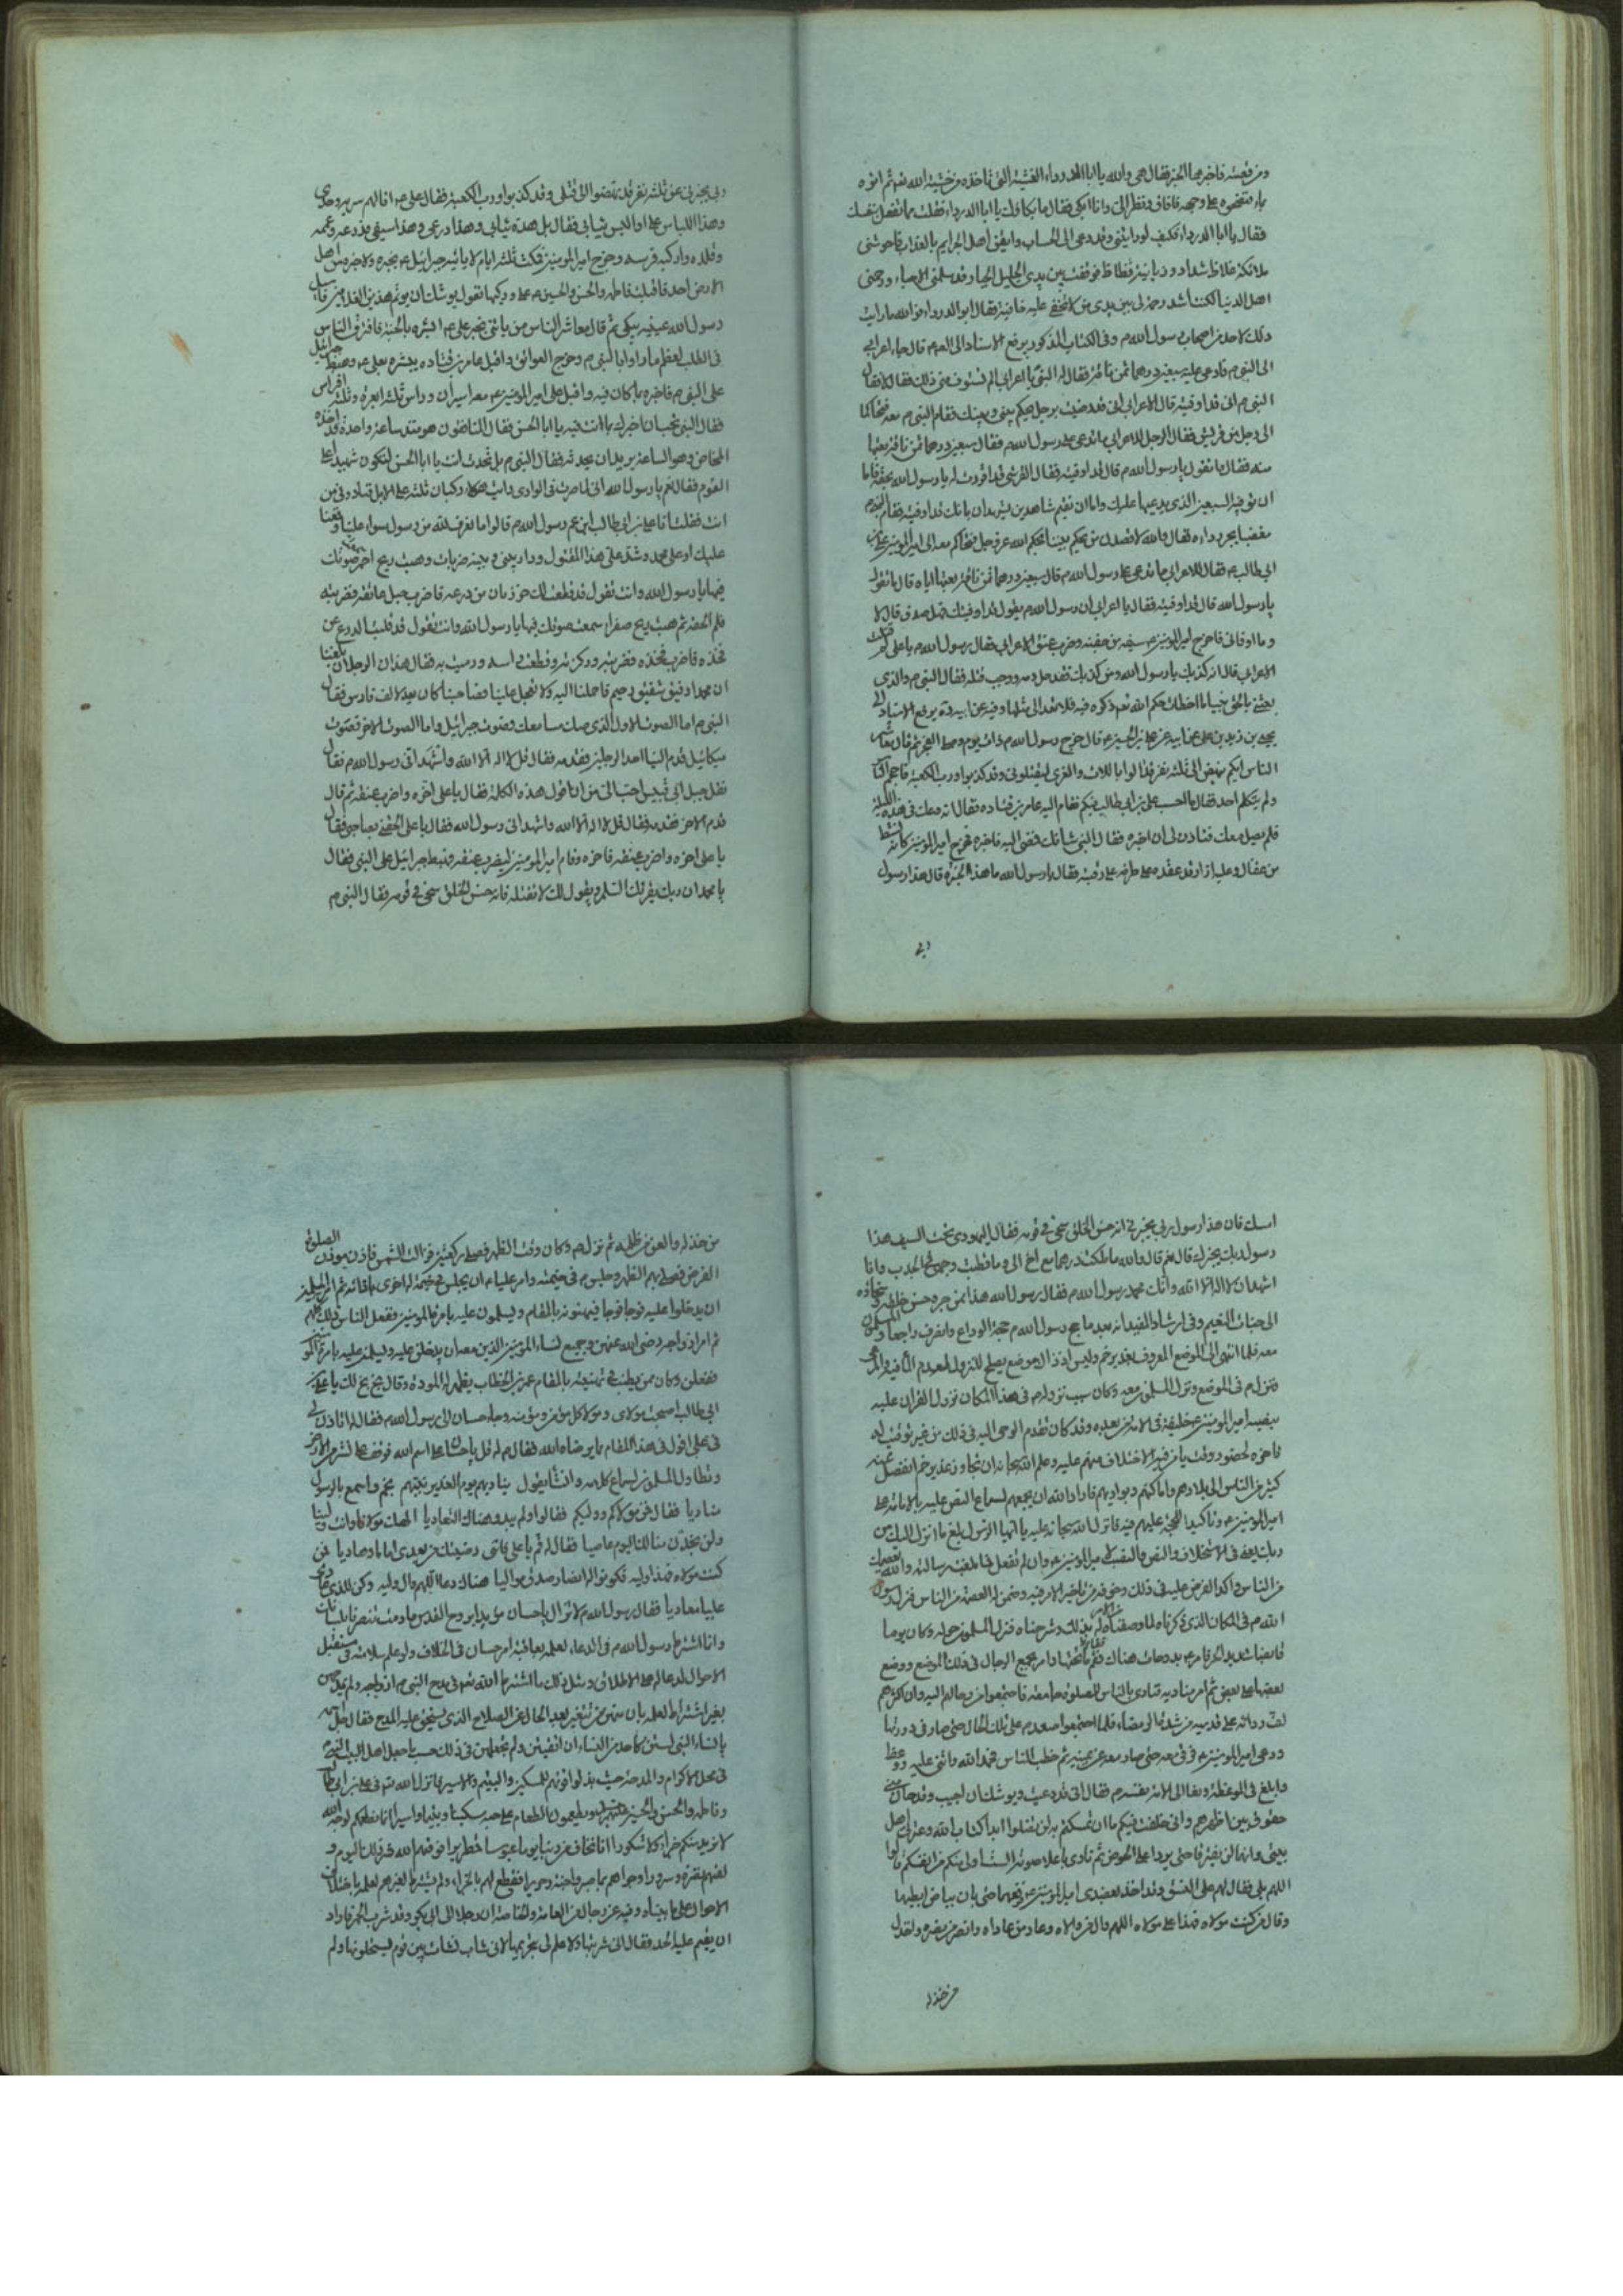 ومن قصته فاخبرها الخبر فقال هي والله يا ابا الدرداء الغشية التي تاخذه من خشية الله نعم ثم اتوه
بماء فنضحوه على وجهه فافاق ونظر الي وانا ابكي فقال ما بكاؤك يا ابا الدرداء فقلت مما تفعل بنفسك
فقال يا ابا الدرداء فكيف لو رايتني وقد دعي الى الحساب وايقن اهل الجرايم بالعذاب فاحوشتني
ملائكة غلاظ شداد وزبانية فظاظ فوقفت بين يدي الجليل الجبار قد سلمني الاحباء ورحمني
اهل الدنيا لكنت اشد رحمة لي بين يدي من لا تخفى عليه خافية فقال ابو الدرداء فوالله ما رايت
ذلك لاحد من اصحاب رسول الله ص وفي الكتاب المذكور يرفع الاسناد الى قال جاء اعرابي
الى النبي ص فادعى عليه سبعين درهما ثمن ناقة فقال له النبي يا اعرابي الم تستوف مني ذلك فقال لا فقال
النبي ص اني قد اوفيته قال الاعرابي اني قد رضيت برجل يحكم بيني وبينك فقام النبي ص معه فتحاكما
الى رجل من قريش فقال الرجل للاعرابي ما تدعي على رسول الله ص فقال سبعين درهما ثمن ناقة بعتها
منه فقال ما تقول يا رسول الله ص قال قد اوفيته فقال القرشي قد اقررت له يا رسول الله بحقه فاما
ان توفيه السبعين الذي يدعيها عليك واما ان تقيم شاهدين يشهدان بانك قد اوفيته فقام النبي ص
مغضبا يجر رداءه فقال والله لاقصدن من يحكم بيننا بحكم الله عز وجل فتحاكم معه الى امير المؤمنين علي بن
ابي طالب ع فقال للاعرابي ما تدعي على رسول الله ص قال سبعين درهما ثمن ناقة بعتها اياه قال ما تقول
يا رسول الله قال قد اوفيته فقال يا اعرابي ان رسول الله ص يقول قد اوفيتك فهل صدق قال لا
وما اوفاني فاخرج امير المؤمنين ع سيفه من جفنه وضرب عنق الاعرابي فقال رسول الله ص يا علي قتلت
الاعرابي قال لانه كذبك يا رسول الله ومن كذبك فقد حل دمه ووجب قتله فقال النبي ص والذي
بعثني بالحق نبيا ما اخطات حكم الله نعم ذكره فيه فلا تعد الى مثلها وفيه عن ابيه ره يرفع الاسناد الى
يحيى بن زيد بن علي عن ابيه عن علي بن الحسين ع قال خرج رسول الله ص ذات يوم وصلى الفجر ثم قال معاشر
الناس ايكم ينهض الى ثلثة نفر قد الوا باللات والعزى ليقتلوني وقد كذبوا ورب الكعبة فاحجم الناس
ولم يتكلم احد فقال ما احسب علي بن ابي طالب فيكم فقام اليه عامر بن قتادة فقال انه وعك في هذه الليلة
فلم يصل معك فتأذن لي ان اخبره فقال النبي شانك فمضى اليه فاخبره فخرج امير المؤمنين كانه نشط
من عقال وعليه ازار قد عقد طرفه على رقبته فقال يا رسول الله ما هذا الخبر قال هذا رسول
ربي
ربي يخبرني عن ثلثة نفر قد نهضوا الى لقتلي وقد كذبوا ورب الكعبة فقال علي ع انا لهم سرية وحدي
وهذا اللباس علي او البس ثيابي فقال بل هذه ثيابي وهذا درعي وهذا سيفي فدرعه وعممه
وقلده واركبه فرسه وخرج امير المؤمنين فمكث ثلثة ايام لا ياتيه جبرائيل ع بخبره ولا خبر من اهل
الارض احد فاقبلت فاطمة والحسن والحسين على وركيها تقول يوشك ان يوتم هذين الغلامين فاسبل
رسول الله عينيه يبكي ثم قال معاشر الناس من ياتني بخبر علي ع ابشره بالجنة فافترق الناس
في الطلب لعظم ما راوا بالنبي ص وخرج العواتق واقبل عامر بن قتادة يبشره بعلي ع وهبط جبرائيل
على النبي ص فاخبره بما كان فيه واقبل علي امير المؤمنين ع معه اسيران وراس وثلثة ابعرة وثلثة افراس
فقال النبي تحب ان اخبرك بما كنت فيه يا ابا الحسن فقال المنافقون هو منذ ساعة واحدة قد اخذه
المخاض وهو الساعة يريد ان يحدثه فقال النبي ص بل تحدث انت يا ابا الحسن لتكون شهيدا على
القوم فقال نعم يا رسول الله اني لما صرت في الوادي رايت هؤلاء ركبانا ثلثة على الابل فنادوني من
انت فقلت انا علي بن ابي طالب ابن عم رسول الله ص قالوا ما نعرف لله من رسول سواء علينا وقعنا
عليك او على محمد وشد علي هذا المقتول ودار بيني وبينه ضربات وهبت ريح احمر صوتك
فيها يا رسول الله وانت تقول قد قطعت لك جربان من درعه فاضرب حبل عاتقه فضربته
فلم احفه ثم هبت ريح صفراء سمعت صوتك فيها يا رسول الله وانت تقول قد قلبت الدرع عن
فخذه فاضرب فخذه فضربته ووكزته وقطعت راسه ورميت به فقال هذان الرجلان بلغنا
ان محمدا رفيق شفيق رحيم فاحملنا اليه ولا تعجل علينا فصاحبنا كان يعد بالف فارس فقال
النبي ص اما الصوت الاول الذي صك مسامعك فصوت جبرائيل واما الصوت الاخر فصوت
ميكائيل قدم الينا احد الرجلين فقدمه فقال قل لا اله الا الله واشهد اني رسول الله ص فقال
نقل جبل ابي قبيس احب الي من ان اقول هذه الكلمة فقال يا علي اخره واضرب عنقه ثم قال
قدم الاخر فقدمه فقال قل لا اله الا الله واشهد اني رسول الله فقال يا علي الحقني بصاحبي فقال
يا علي اخره واضرب عنقه فاخره وقام امير المؤمنين ليضرب عنقه فهبط جبرائيل على النبي فقال
يا محمد ان ربك يقرئك السلام ويقول لك لا تقتله فانه حسن الخلق سخي في قومه فقال النبي ص
امسك فان هذا رسول ربي يخبرني انه حسن الخلق سخي في قومه فقال اليهودي تحت السيف هذا
رسول ربك يخبرك قال نعم قال والله ما ملكت درهما مع اخ لي وما قطبت وجهي في الجدب وانا
اشهد ان لا اله الا الله وانك محمد رسول الله ص فقال رسول الله هذا ممن جره حسن خلقه وسخاؤه
الى جنات النعيم وفي ارشاد المفيد انه بعد ما حج رسول الله ص حجة الوداع وانصرف راجعا والمسلمون
معه فلما انتهى الى الموضع المعروف بغدير خم وليس اذ ذاك موضع يصلح للنزول لعدم الماء فيه والمرعى
فنزل ص في الموضع ونزل المسلمون معه وكان سبب نزوله ص في هذا المكان نزول القران عليه
بنصبه امير المؤمنين ع خليفة في الامة من بعده وقد كان تقدم الوحي اليه في ذلك من غير توقيت له
فاخره لحضور وقت يامن فيه الاختلاف منهم عليه وعلم الله سبحانه ان تجاوز غدير خم انفصل عنه
كثير من الناس الى بلادهم واماكنهم وبواديهم فاراد الله ان يجمعهم لسماع النص عليه بالامامة على
امير المؤمنين ع وتاكيدا للحجة عليهم فيه فانزل الله سبحانه عليه يا ايها الرسول بلغ ما انزل اليك من
ربك يعني في الاستخلاف والنص والنصب لامير المؤمنين ع وان لم تفعل فما بلغت رسالته والله يعصمك
من الناس فاكد الفرض عليه في ذلك وخوفه من تاخير الامر فيه وضمن له العصمة من الناس فنزل رسول
الله ص في المكان الذي ذكرناه لما وصفناه من الامر له بذلك وشرحناه فنزل المسلمون حوله وكان يوما
قائظا شديد الحر فامر ع بدوحات هناك فقم ما تحتها وامر بجمع الرحال في ذلك الموضع ووضع
بعضها على بعض ثم امر مناديه فنادى بالناس للصلوة جامعة فاجتمعوا من رحالهم اليه وان اكثرهم
لف رداءه على قدميه من شدة الرمضاء فلما اجتمعوا صعد ص على تلك الرحال حتى صار في ذروتها
ودعى امير المؤمنين ع فرقى معه حتى صار معه عن يمينه ثم خطب الناس فحمد الله واثنى عليه ووعظ
وابلغ في الموعظة ونعا الى الامة نفسه ص فقال اني قد دعيت ويوشك ان اجيب وقد حان مني
حقوق من بين اظهركم واني مخلف فيكم ما ان تمسكتم به لن تضلوا ابدا كتاب الله وعترتي اهل
بيتي وانهما لن يفترقا حتى يردا علي الحوض ثم نادى باعلا صوته الست اولى منكم من انفسكم قالوا
اللهم بلى فقال لهم على النسق وقد اخذ بعضدي امير المؤمنين ع فرفعهما حتى بان بياض ابطيهما
وقال من كنت مولاه فهذا علي مولاه اللهم وال من والاه وعاد من عاداه وانصر من نصره واخذل
من خذله
من خذله والعن من ظلمه ثم نزل ص وكان وقت الظهر فصلى ركعتين ثم زالت الشمس فاذن مؤذنه الصلوة
الفرض فصلى بهم الظهر وجلس ص في خيمته وامر عليا ع ان يجلس في خيمة له اخرى بازائه ثم امر المسلمين
ان يدخلوا عليه فوجا فوجا فيهنونه بالمقام ويسلمون عليه بامرة المؤمنين ففعل الناس ذلك كلهم
ثم امر ازواجه رضي الله عنهن وجميع نساء المؤمنين الذين معه ان يدخلن عليه ويسلمن عليه بامرة المؤمنين
ففعلن وكان ممن اطنب في تهنيته بالمقام عمر بن الخطاب يظهر له المودة وقال بخ بخ لك يا علي بن
ابي طالب اصبحت مولاي ومولا كل مؤمن ومؤمنة وجاء حسان الى رسول الله ص فقال له اتاذن لي
في ان اقول في هذا المقام ما يرضاه الله فقال ص له قل يا حسان على اسم الله فوقف على نشز من الارض
وتطاول المسلمون لسماع كلامه وانشا يقول يناديهم يوم الغدير نبيهم بخم واسمع بالرسول
مناديا فقال فمن مولاكم ووليكم فقالوا ولم يبدو هناك التعاديا الهك مولانا وانت ولينا
ولن تجدن منا لك اليوم عاصيا فقال له قم يا علي فانني رضيتك من بعدي اماما وهاديا فمن
كنت مولاه فهذا وليه فكونوا له انصار صدق مواليا هناك دعا اللهم وال وليه وكن للذي عادى
عليا معاديا فقال رسول الله ص لا تزال يا حسان مؤيدا بروح القدس ما دمت تنصرنا بلسانك
وانما اشترط رسول الله ص في الدعاء لعلمه بعاقبة امر حسان في الخلاف ولو علم سلامته في مستقبل
الاحوال لدعا له على الاطلاق ومثل ذلك ما اشترط الله تعم في مدح النبي ص ازواجه ولم يمدحهن
بغير اشتراط لعلمه بان منهن من تتغير بعد الحال عن الصلاح الذي يستحق عليه المدح فقال
يا نساء النبي لستن كاحد من النساء ان اتقيتن ولم يجعلهن في ذلك حسب ما جعل اهل البيت النبي
في محل الاكرام والمدحة حيث بذلوا قوتهم للمسكين واليتيم والاسير فانزل الله تعم في علي بن ابي طالب
وفاطمة والحسن والحسين ويطعمون الطعام على حبه مسكينا ويتيما واسيرا انما نطعمكم لوجه الله
لا نريد منكم جزاء ولا شكورا انا نخاف من ربنا يوما عبوسا قمطريرا فوقيهم الله شر ذلك اليوم و
لقيهم نضرة وسرورا وجزاهم بما صبروا جنة وحريرا فقطع لهم بالجزاء ولم يشترط لغيرهم لعلمه باختلاف
الاحوال على ما بيناه وفيه عن رجال من العامة والخاصة ان رجلا الى ابي بكر وقد شرب الخمر فاراد
ان يقيم عليه الحد فقال اني شربتها ولا علم لي بتحريمها لاني شاب نشات بين قوم يستحلونها ولم